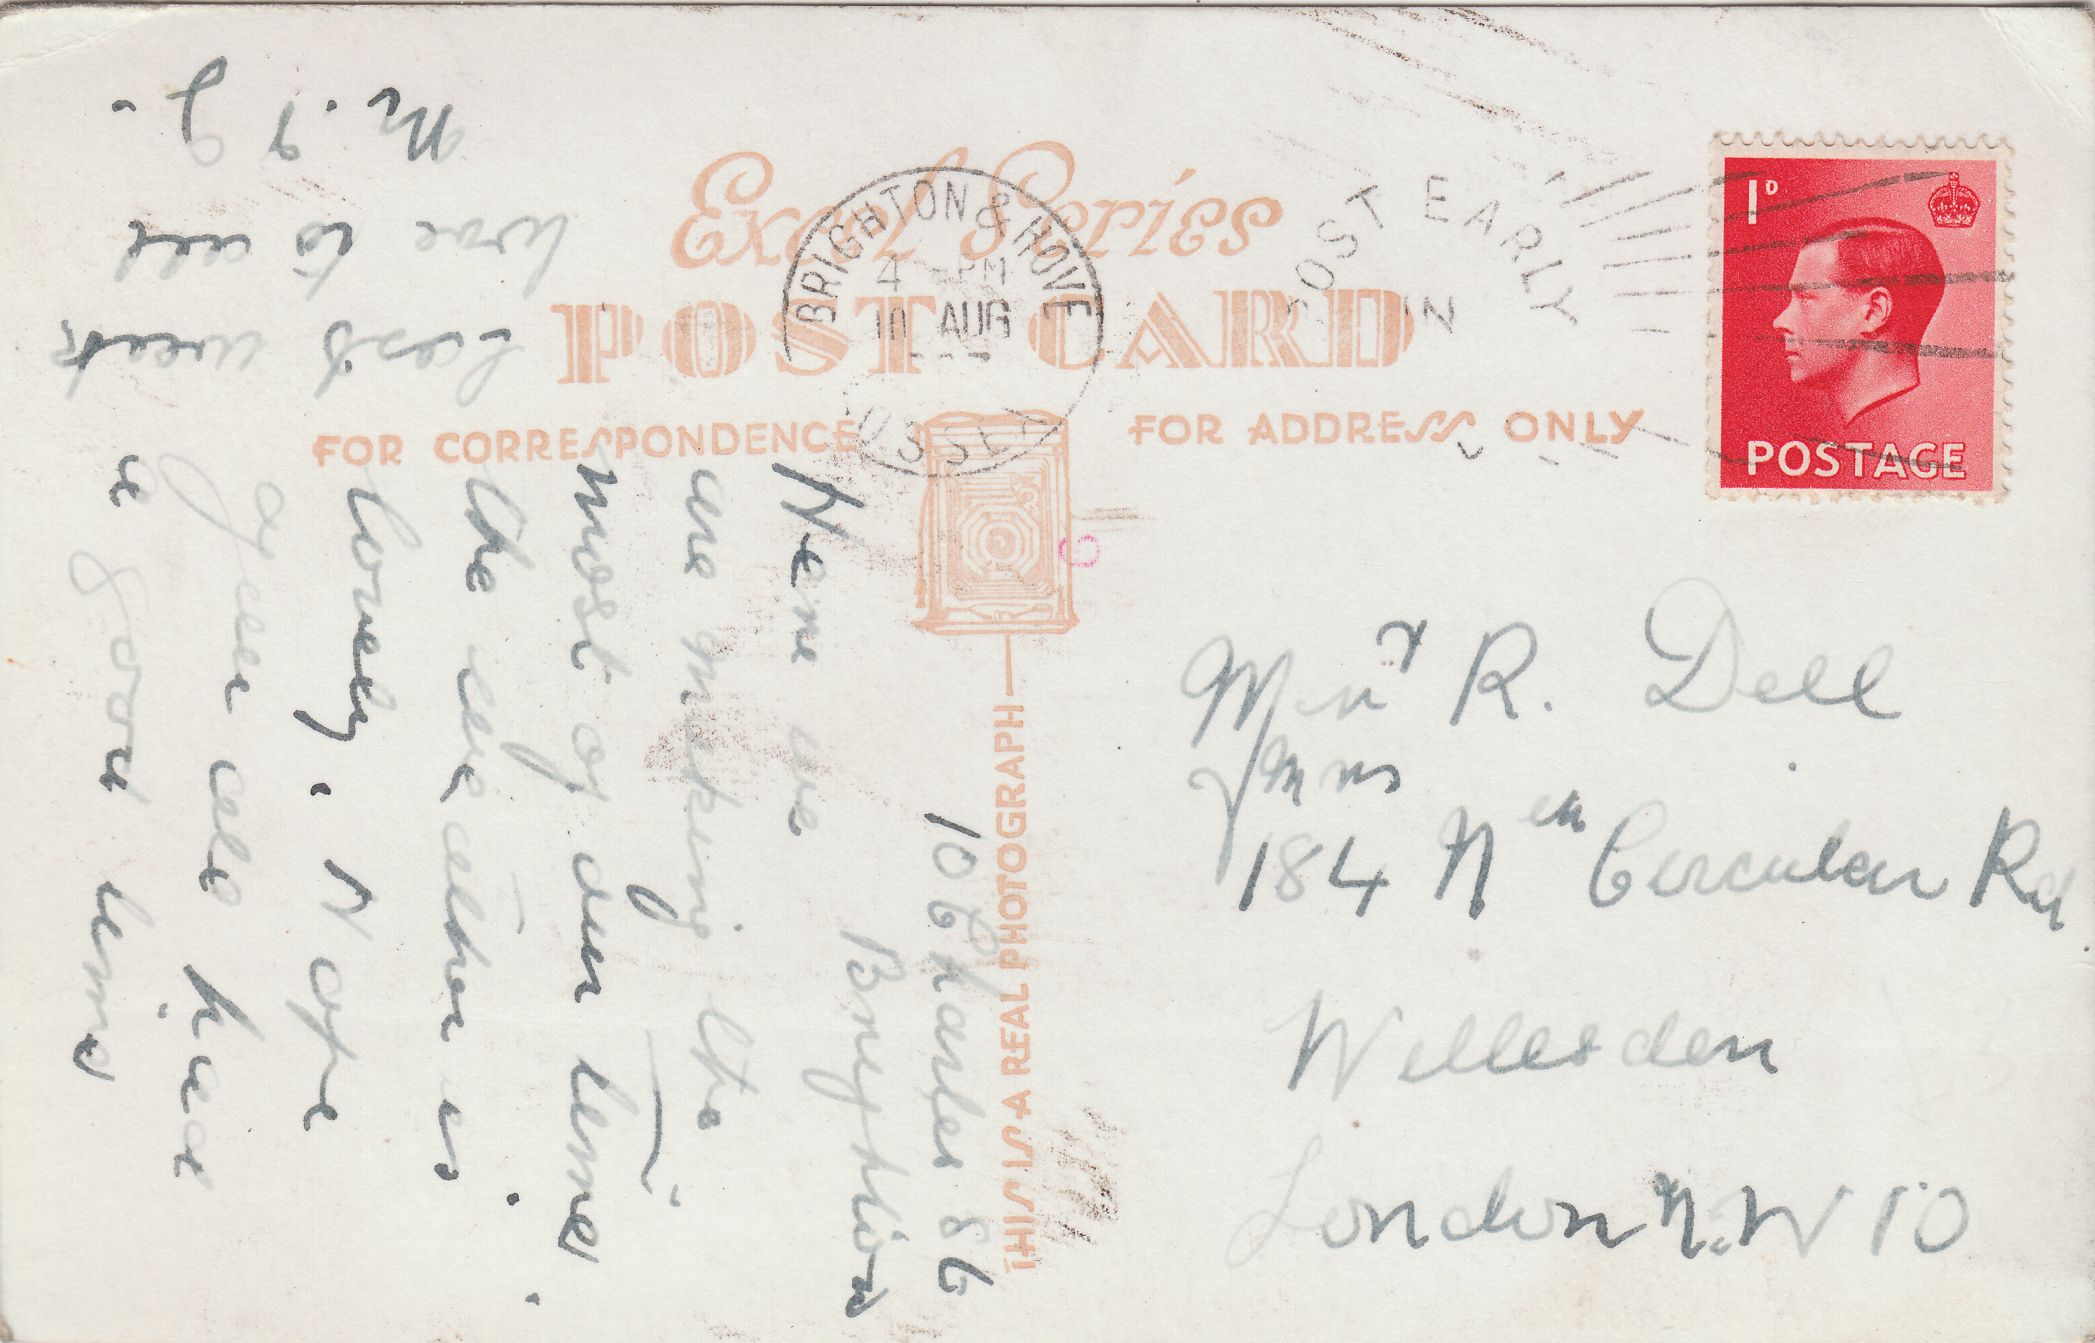 Excel Series
POST CARD
BRIGHTON & HOVE
4 PM
10 AUG
SUSSEX
POST EARLY
IN
1D
POSTAGE
FOR CORRESPONDENCE
FOR ADDRESS ONLY
THIS IS A REAL PHOTOGRAPH
10 Charles St
Brighton
Here we
are making the
most of our time
the weather is
lovely. Hope
you all have
a good time
next week
love to all
M.
Mr & R. Dell
Mrs
184 Nth Circular Rd
Willesden
London N.W 10